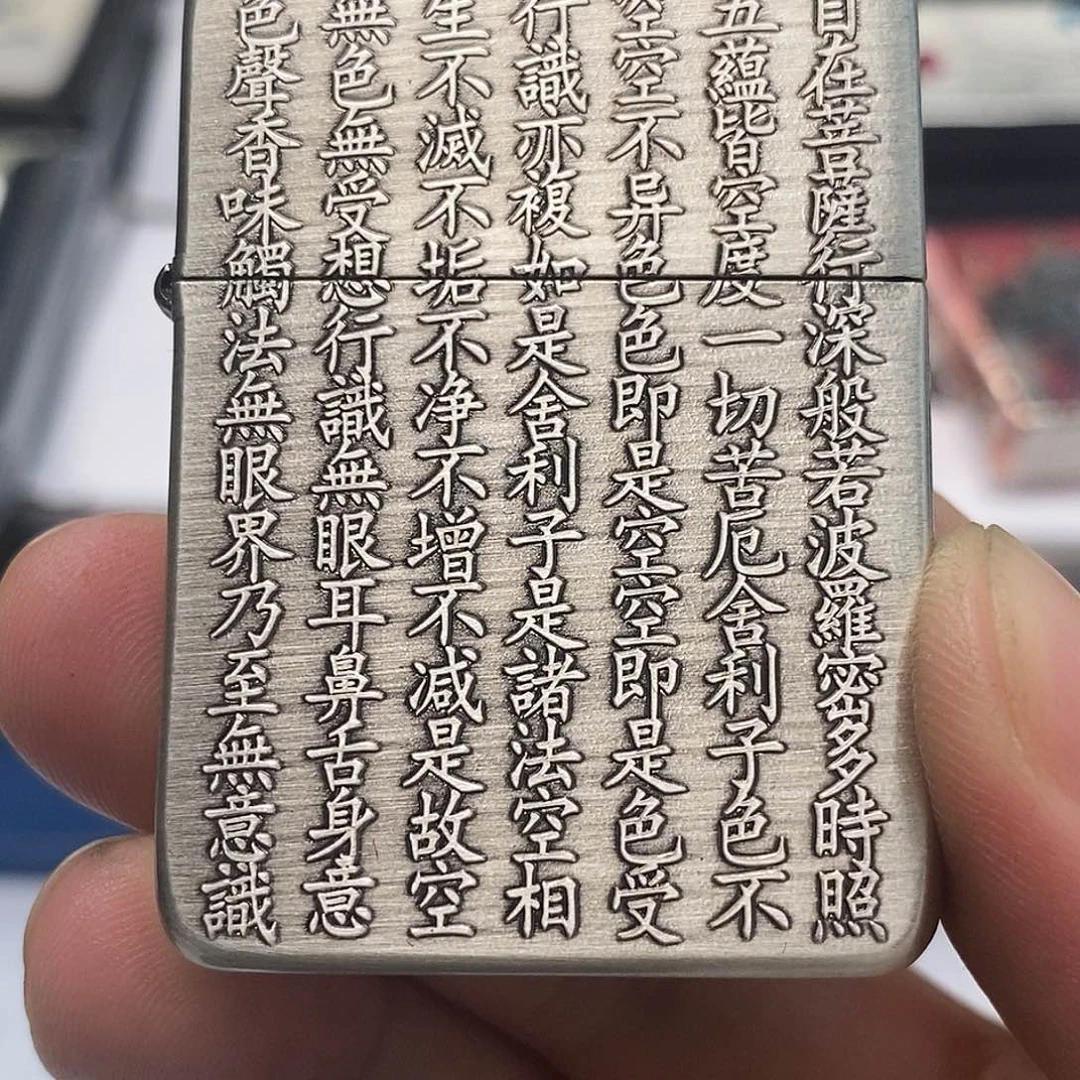 自在菩薩行深般若波羅密多時照
五蘊皆空度一切苦厄舍利子色不
空空不异色色即是空空即是色受
行識亦複如是舍利子是諸法空相
生不滅不垢不净不增不减是故空
無色無受想行識無眼耳鼻舌身意
色聲香味觸法無眼界乃至無意識